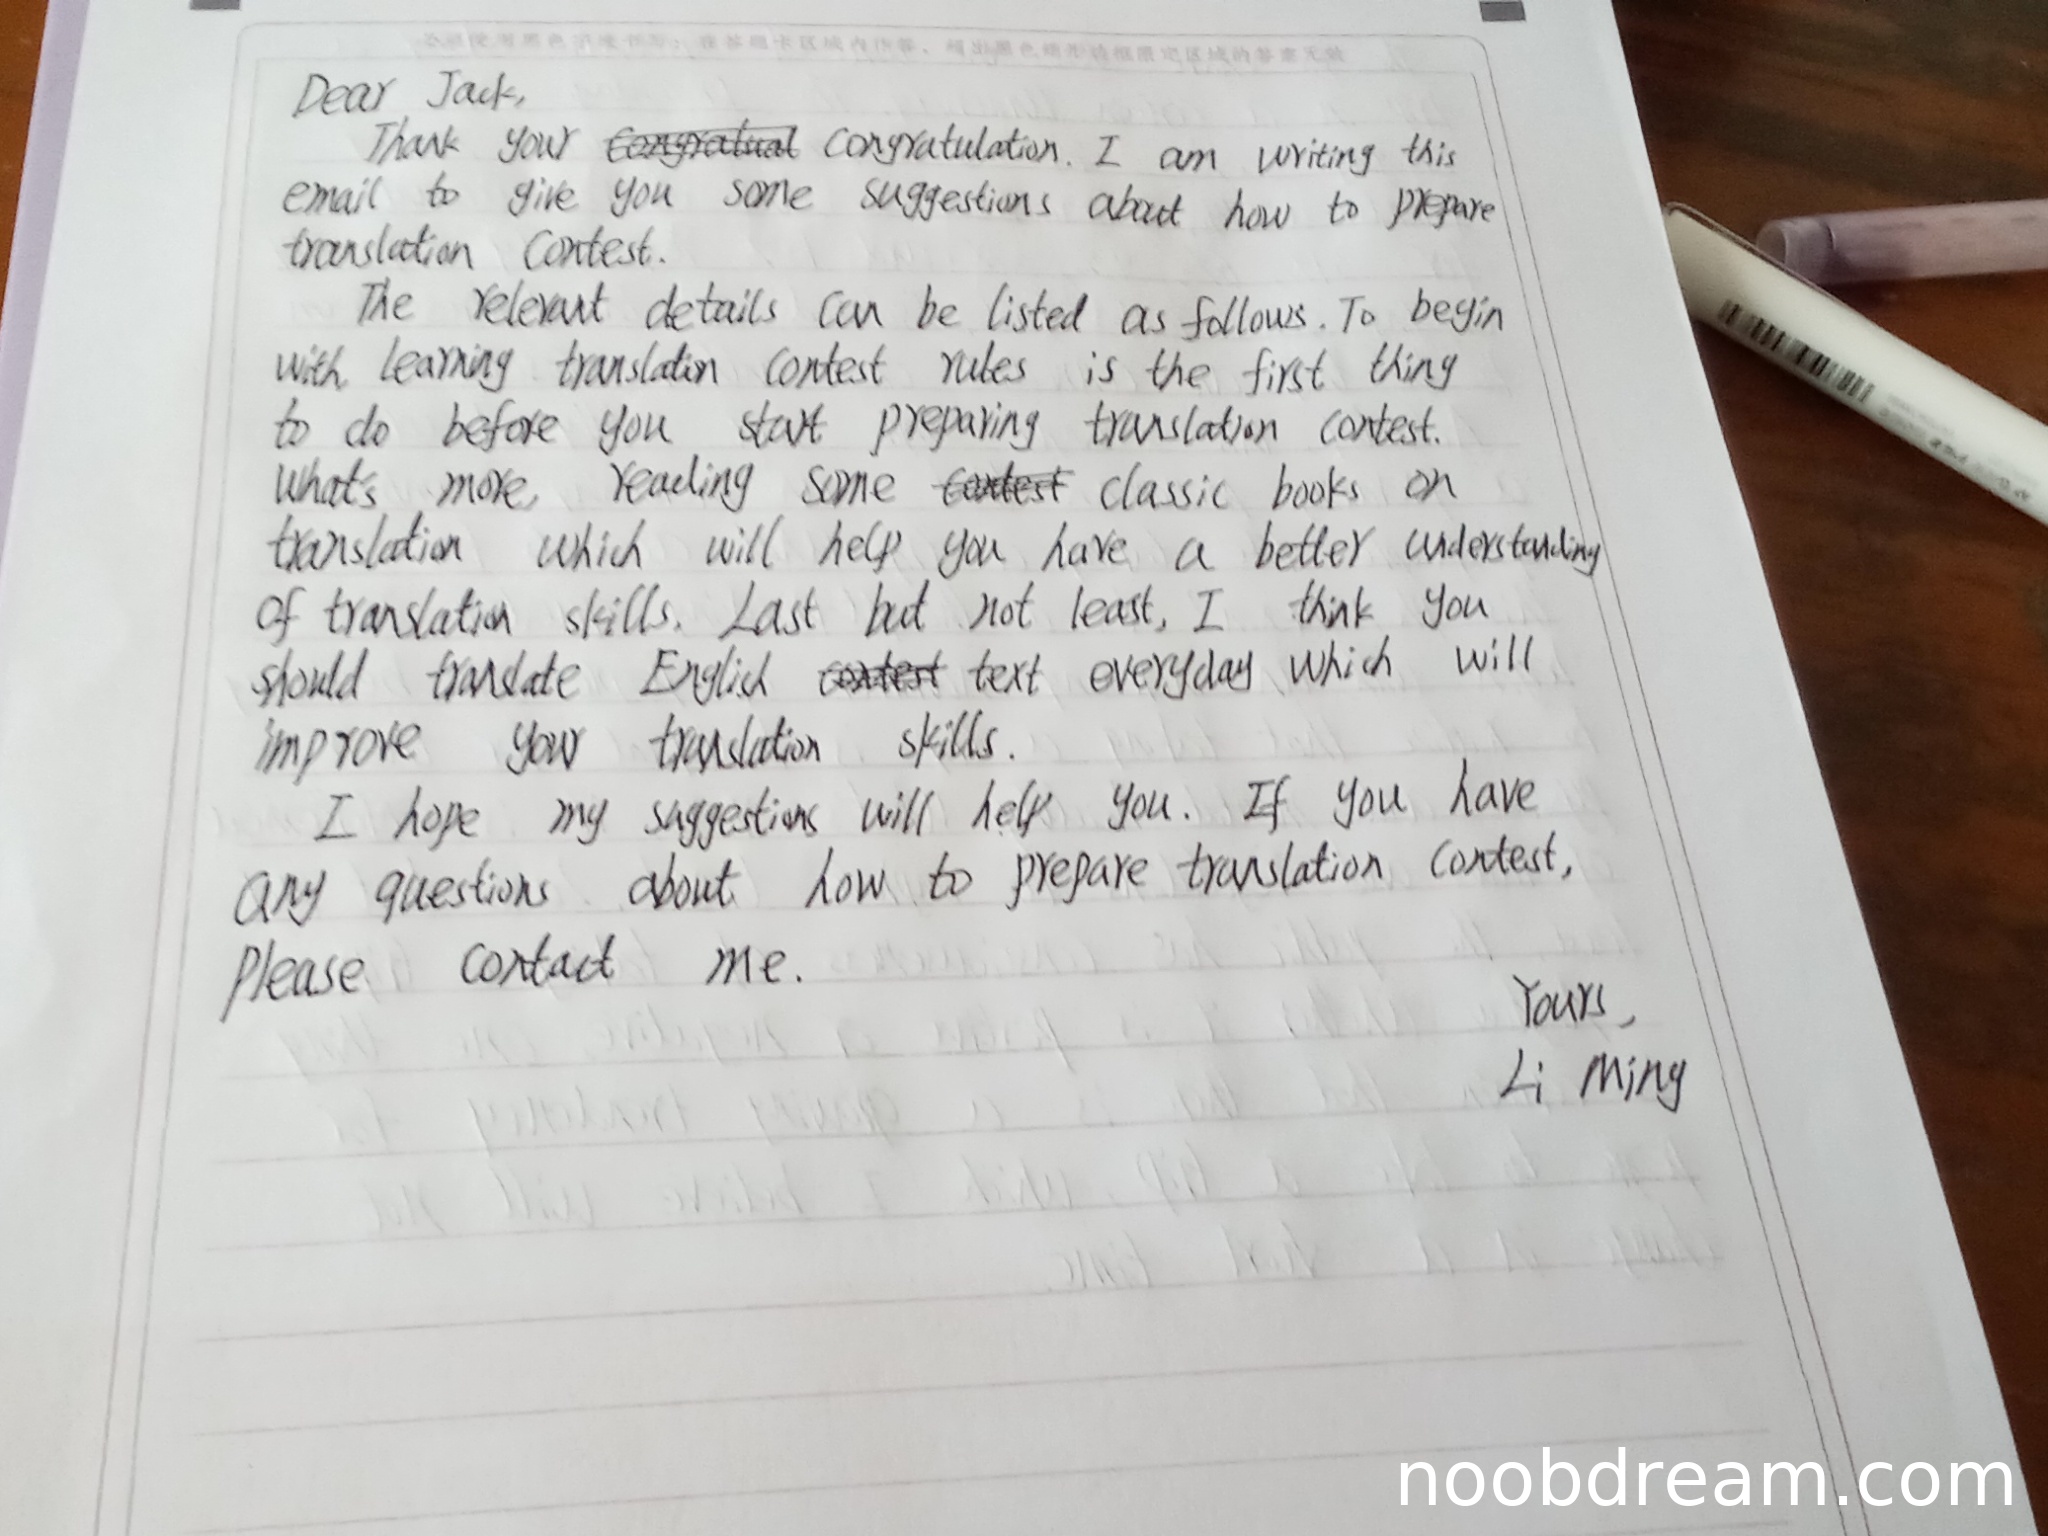 Dear Jack,
Thank your congratual congratulation. I am writing this
email to give you some suggestions about how to prepare
translation contest.
The relevant details can be listed as follows. To begin
with learning translation contest rules is the first thing
to do before you start preparing translation contest.
What's more, reading some contest classic books on
translation which will help you have a better understanding
of translation skills. Last but not least, I think you
should translate English contest text everyday which will
improve your translation skills.
I hope my suggestions will help you. If you have
any questions about how to prepare translation contest,
please contact me.
Yours,
Li Ming
noobdream.com